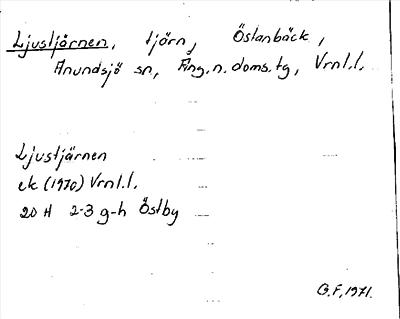 Ljustjärnen, tjärn, Östanbäck,
Anundsjö sn, Ång. n. doms. tg, Vrnl.l.
Ljustjärnen
ek (1970) Vrnl.l.
20 H 2-3 g-h Östby
G.F, 1971.